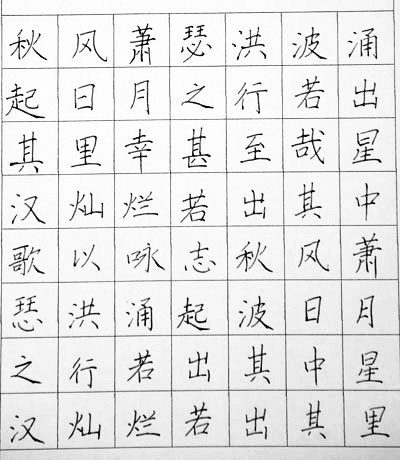 秋风萧瑟洪波涌
起日月之行若出
其里幸甚至哉星
汉灿烂若出其中
歌以咏志秋风萧
瑟洪涌起波日月
之行若出其中星
汉灿烂若出其里